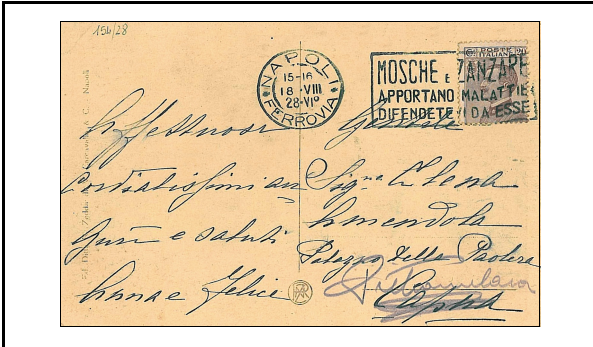 154/28
NAPOLI
15-16
18·VIII
28·VI°
FERROVIA
MOSCHE E ZANZARE
APPORTANO MALATTIE
DIFENDETEVI DA ESSE
POSTE
ITALIANE
Affettuosi
Cordialissimi au
guri e saluti
Anna e Felice
Gentile
Sig.na Elena
Amendola
Palazzo della
Capua
Napoli